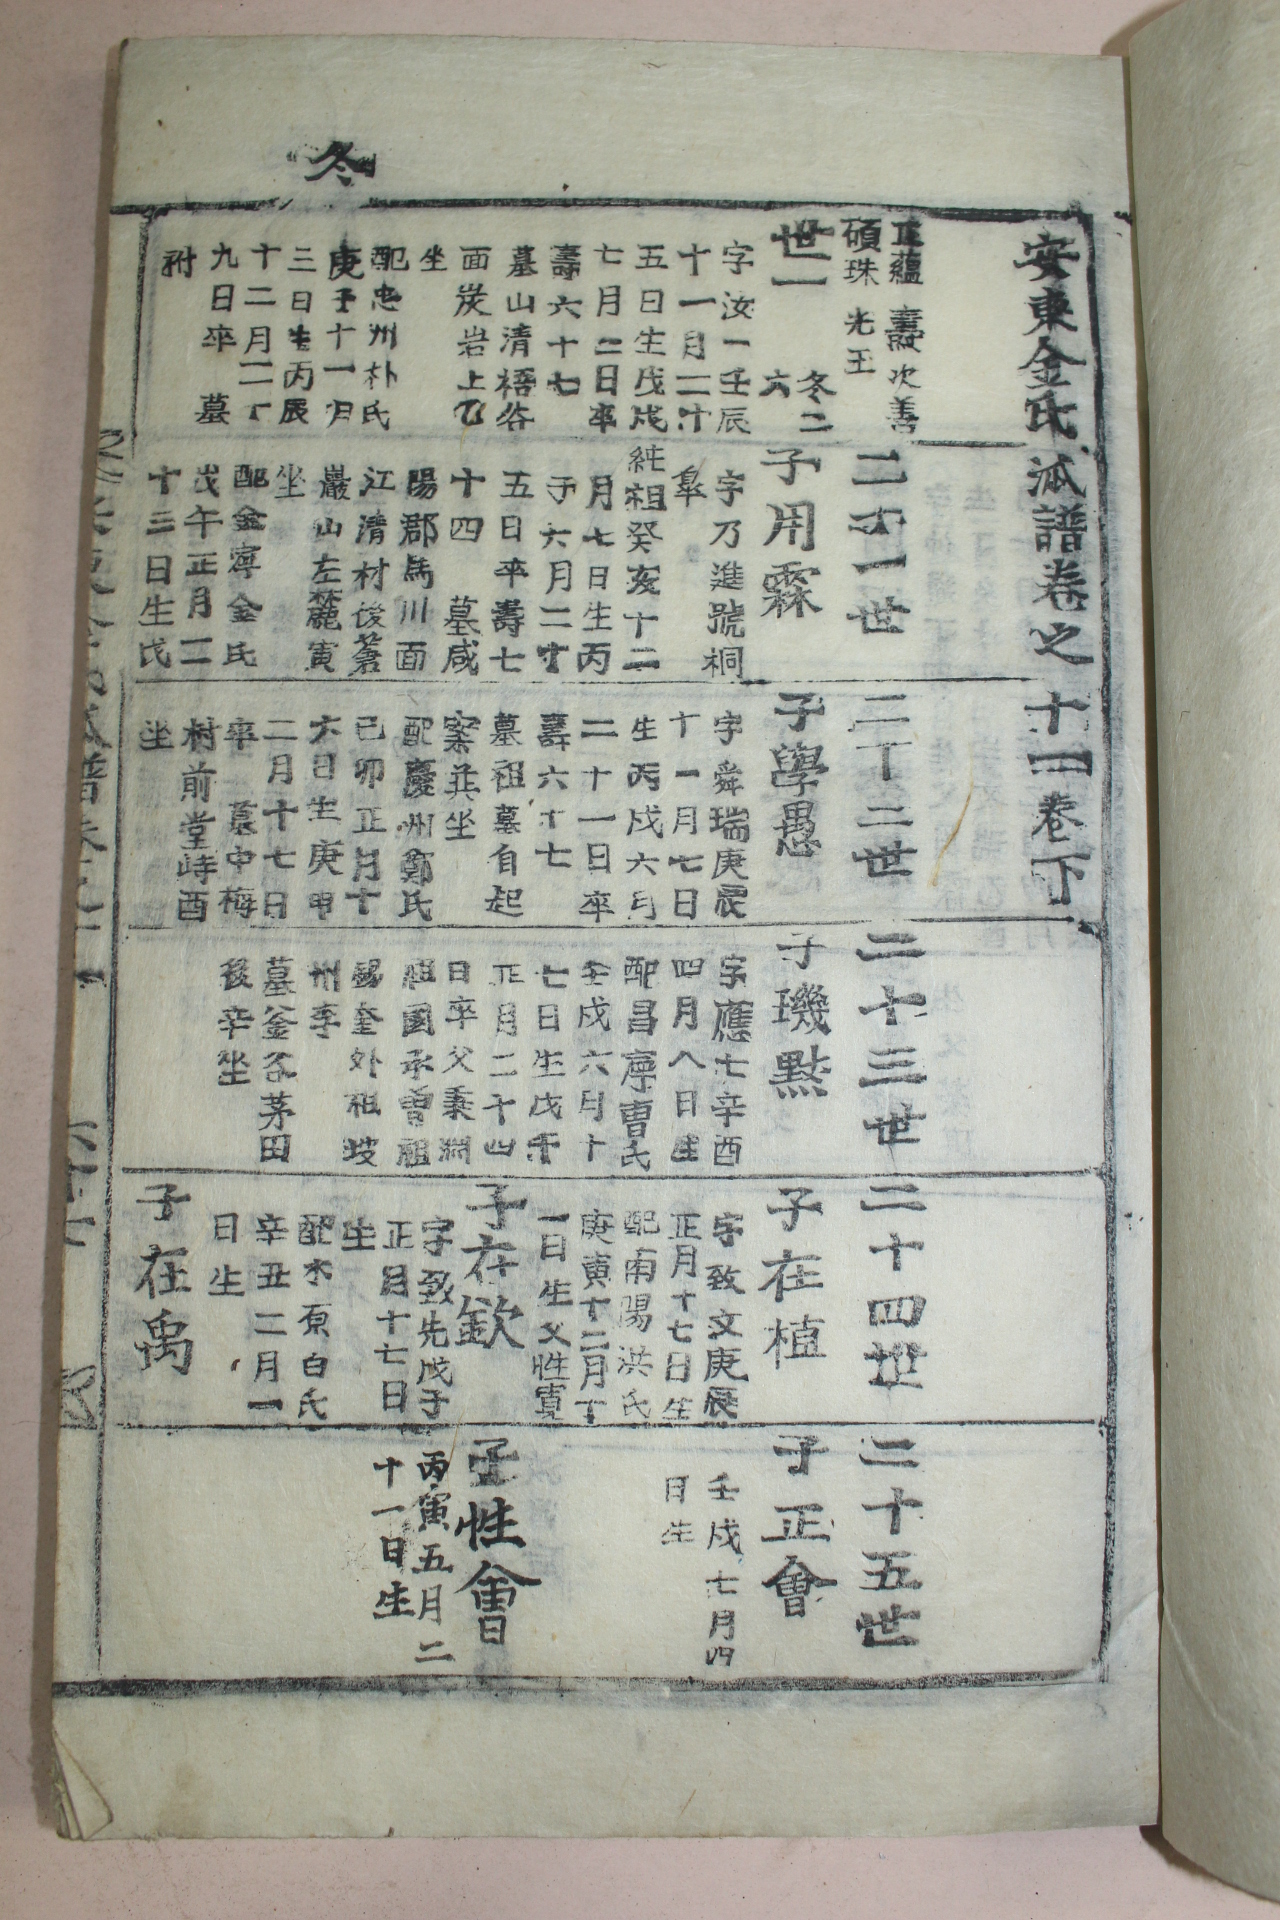 冬
安東金氏派譜卷之十一卷下
正蘊 壽 次善
碩珠 光玉
世一 冬二六
字汝一壬辰
十一月二十
五日生戊戌
七月二日卒
壽六十七
墓山清梧谷
面炭岩上乙
坐
配忠州朴氏
庚子十一月
三日生丙辰
十二月二十
九日卒 墓
祔
二十一世
子用霖
字乃進號桐
皐
純祖癸亥十二
月七日生丙
子六月二十
五日卒壽七
十四 墓咸
陽郡馬川面
江清村後
巖山左麓寅
坐
配金寧金氏
戊午正月二
十三日生戊
二十二世
子學愚
字舜瑞庚辰
十一月七日
生丙戌六月
二十一日卒
壽六十七
墓祖墓自起
案並坐
配慶州鄭氏
己卯正月十
六日生庚申
二月十七日
卒 墓中梅
村前堂峙酉
坐
二十三世
子璣點
字應七辛酉
四月八日生
配昌寧曺氏
壬戌六月十
七日生戊午
正月二十四
日卒父秉淵
祖國承曾祖
錫奎外祖坡
州李
墓釜谷茅田
後辛坐
二十四世
子在植
字致文庚辰
正月十七日生
配南陽洪氏
庚寅十二月十
一日生父性寬
子在欽
字致先戊子
正月十七日
生
配水原白氏
辛丑二月一
日生
子在禹
二十五世
子正會
壬戌七月四
日生
子性會
丙寅五月二
十一日生